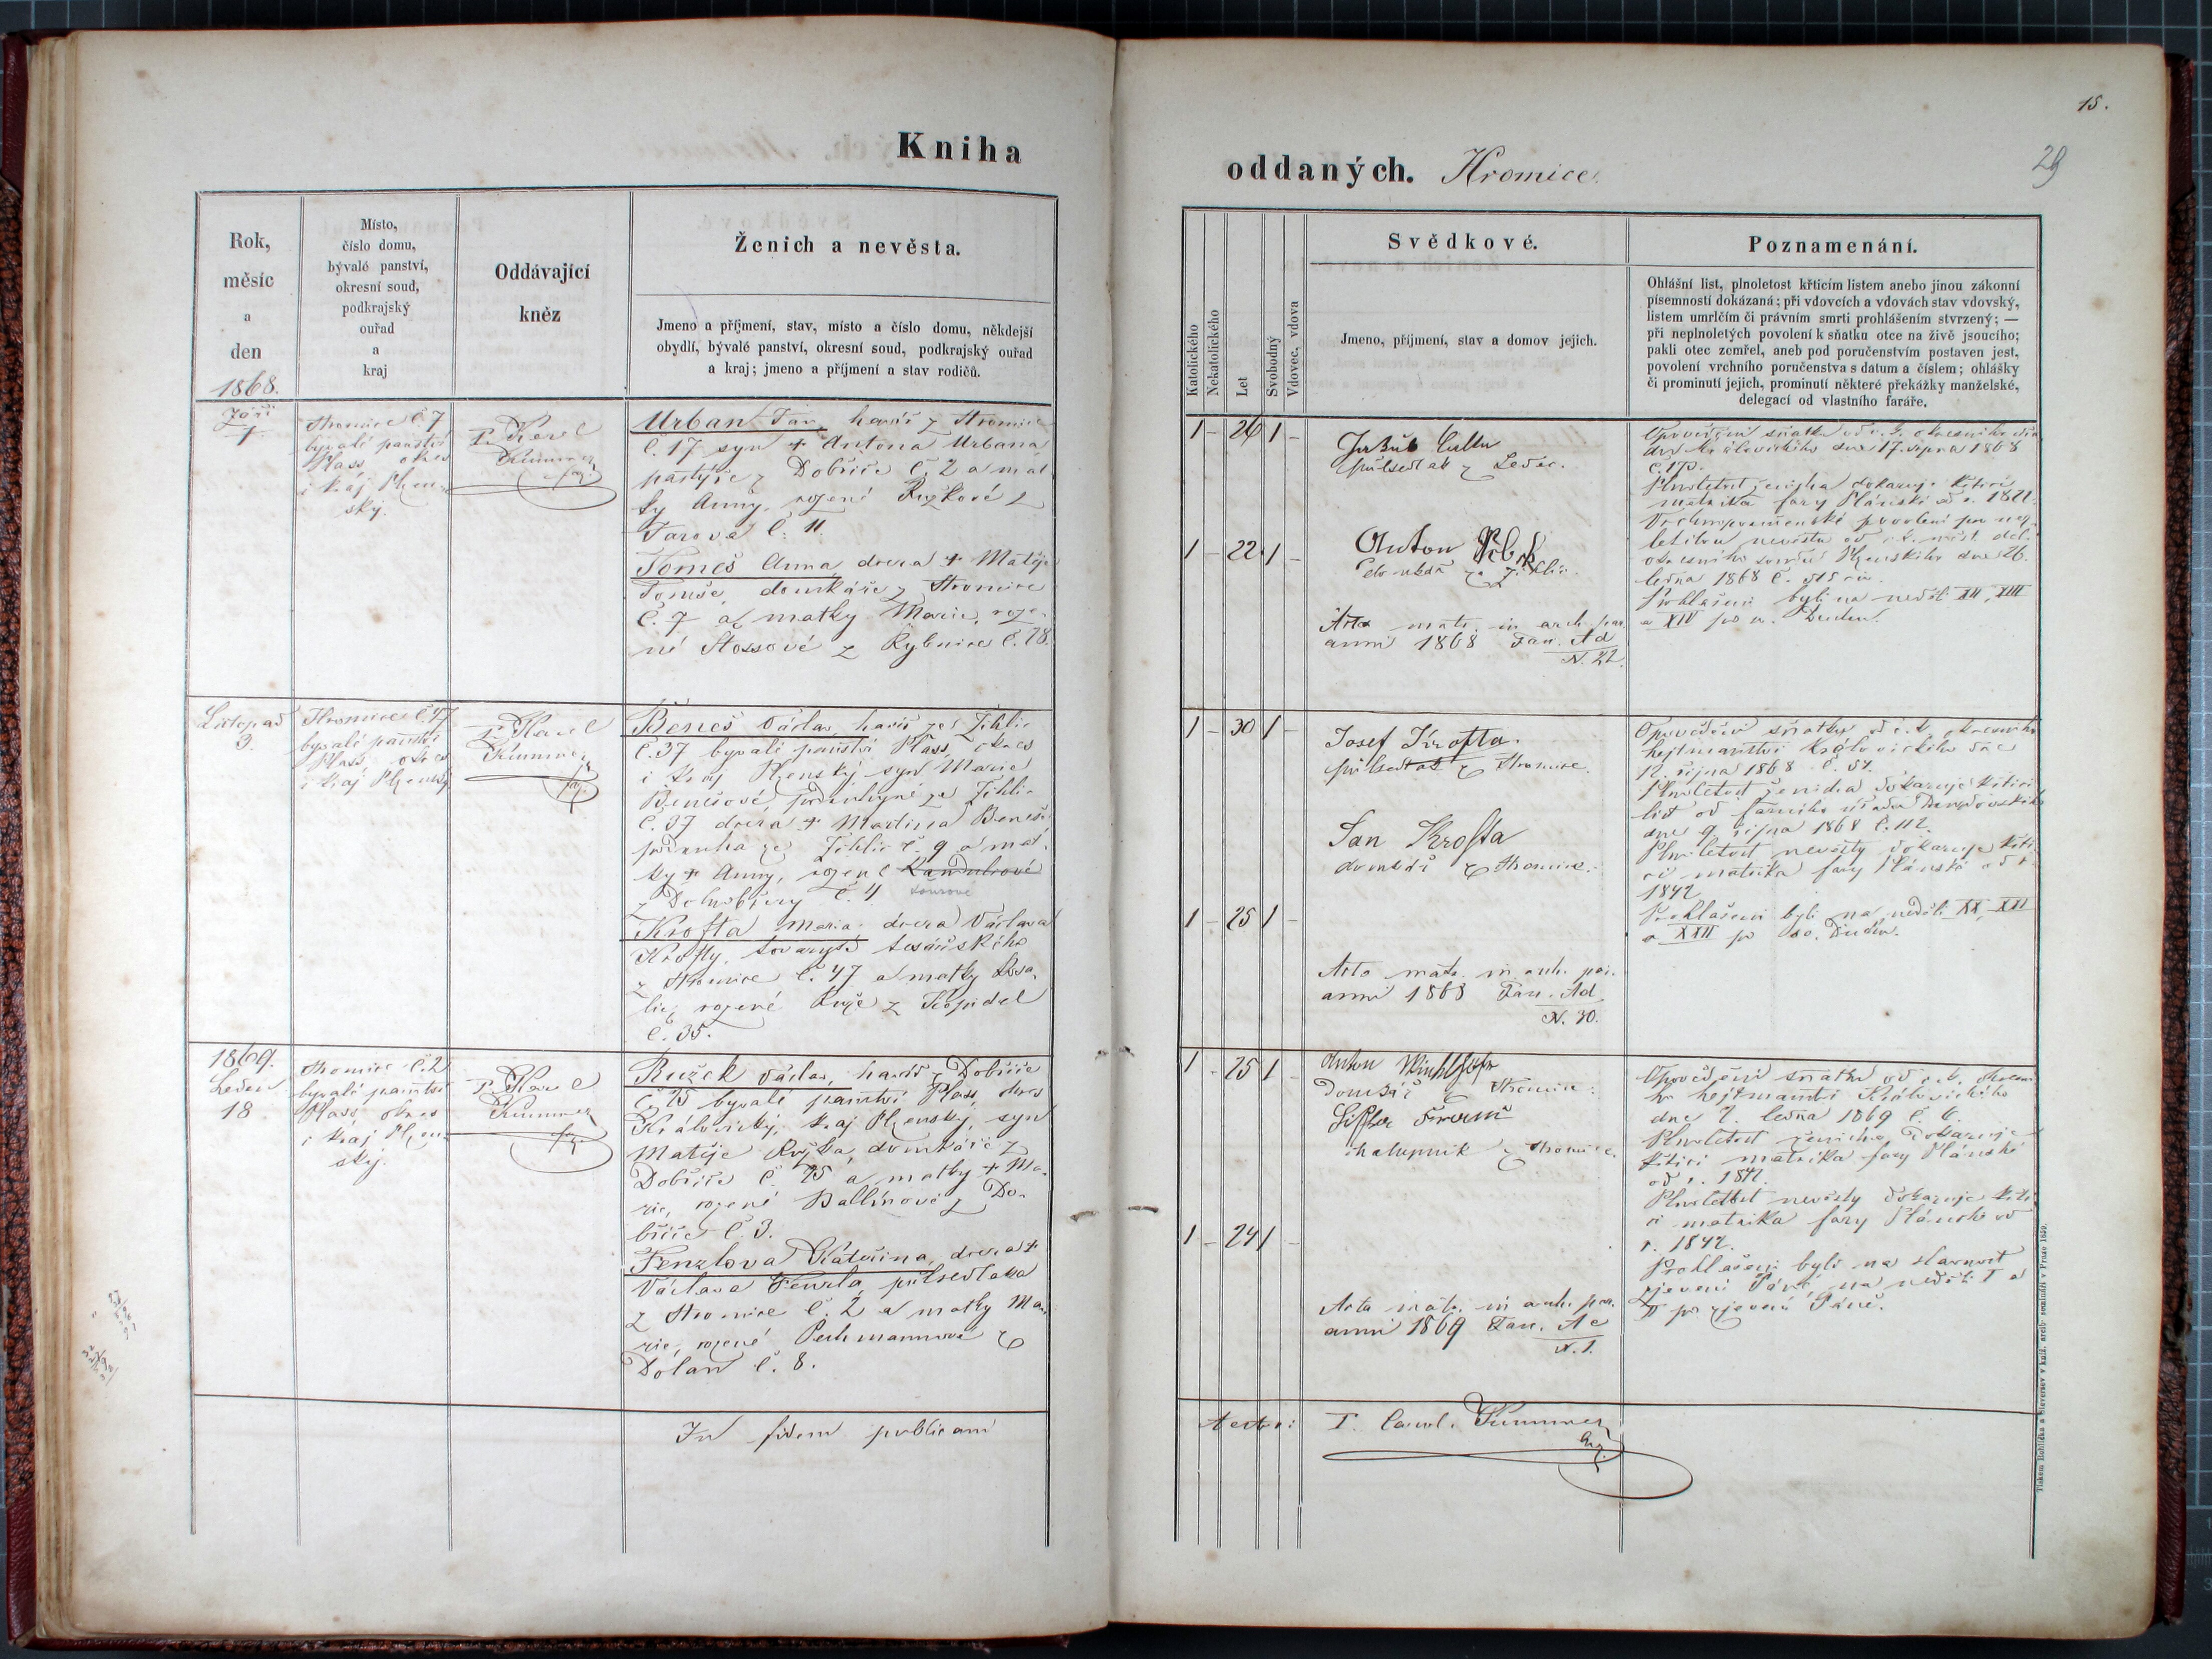 15.
29
Kniha
oddaných. Hromice.
Rok,
měsíc
a
den
1868.
Místo,
číslo domu,
bývalé panství,
okresní soud,
podkrajský
ouřad
a
kraj
Oddávající
kněz
Ženich a nevěsta.
Jmeno a příjmení, stav, místo a číslo domu, někdejší
obydlí, bývalé panství, okresní soud, podkrajský ouřad
a kraj; jmeno a příjmení a stav rodičů.
Katolického
Nekatolického
Let
Svobodný
Vdovec, vdova
Svědkové.
Jmeno, příjmení, stav a domov jejich.
Poznamenání.
Ohlášní list, plnoletost křticím listem anebo jinou zákonní
písemností dokázaná; při vdovcích a vdovách stav vdovský,
listem umrlčím či právním smrti prohlášením stvrzený; —
při neplnoletých povolení k sňatku otce na živě jsoucího;
pakli otec zemřel, aneb pod poručenstvím postaven jest,
povolení vrchního poručenstva s datum a číslem; ohlášky
či prominutí jejich, prominutí některé překážky manželské,
delegací od vlastního faráře.
Září
1.
Hromice č. 7
bývalé panství
Plass okres
i kraj Plzen-
ský.
P. Karel
Kummer
far.
Urban Jan havíř z Hromice
č. 17 syn + Antona Urbana
pastýře z Dobříče č. 2 a mat
ky Anny, rozené Růžkové z
Tarova č. 11.
Tomeš Anna dcera + Matěje
Tomeše, domkáře z Hromice
č. 7 a matky Marie, roze-
né Stossové z Rybnice č. 28.
1 - 26 1 -
1 - 22 1 -
půlsedlák z Ledec.
Anton
domkář
Acta matr. in arch. par.
anni 1868 Fasc. Ad
N. 22.
Opovědění sňatku od c. k. okresního
Královického dne 17. srpna 1868
Plnoletost ženicha dokazuje křticí
matrika fary Plánské od r.
Vrchnoporučenské povolení pro nez-
letilou nevěstu od c. k. měst. del.
okresního soudu Plzenského dne 26.
ledna 1868 č.
Prohlášeni byli na neděli XII, XIII
a XIV po sv. Duchu.
Listopad
3.
Hromice č. 47
bývalé panství
Plass okres
i kraj Plzenský
P. Karel
Kummer
far.
Beneš Václav, havíř ze Žihlic
č. 37 bývalé panství Plass, okres
i kraj Plzenský syn Marie
Benešové, podruhyně ze Žihlic
č. 37 dcera + Martina Beneše
podruha ze Žihlic č. 9 a mat-
ky + Anny, rozené
z č. 4
Krofta Maria, dcera Václava
Krofty, tovaryše tesařského
z Hromice č. 47 a matky Rosa-
lie, rozené Kuje z
č. 35.
1 - 30 1 -
1 - 25 1 -
Josef Krofta.
půlsedlák z Hromice.
Jan Krofta
domkář z Hromice.
Acta matr. in arch. par.
anni 1868 Fasc. Ad
N. 30.
Opovědění sňatku od c. k. okresního
hejtmanství Královického dne
12. října 1868 č. 54.
Plnoletost ženicha dokazuje křticí
list od farního úřadu
dne 9. října 1868 č. 112.
Plnoletost nevěsty dokazuje křti-
cí matrika fary Plánské od r.
1842
Prohlášeni byli na neděli XX, XXI
a XXII po sv. Duchu.
1869.
Leden
18
Hromice č. 2
bývalé panství
Plass okres
i kraj Plzen-
ský.
P. Karel
Kummer
far.
Ružek Václav, havíř z Dobříče
č. 25 bývalé panství Plass, okres
Královický, kraj Plzenský, syn
Matěje Růžka, domkáře z
Dobříče č. 25 a matky + Ma-
rie, rozené Ballínové z Do-
bříče č. 3.
Fenzlova Kateřina, dcera +
Václava Fenzla, půlsedláka
z Hromice č. 2 a matky Ma-
rie, rozené Pechmannové z
Dolan č. 8.
1 - 25 1 -
1 - 24 1 -
Anton
Domkář z Hromice.
chalupník z Hromice.
Acta matr. in arch. par.
anni 1869 Fasc. Ae
N. 1.
Opovědění sňatku od c. k. okresní-
ho hejtmanství Královického
dne 2. ledna 1869 č. 6.
Plnoletost ženicha dokazuje
křticí matrika fary Plánské
od r.
Plnoletost nevěsty dokazuje křti-
cí matrika fary Plánské od
r. 1842.
Prohlášeni byli na slavnost
zjevení Páně, na neděli I a
II po zjevení Páně.
In fidem publicam
testor: P. Carol. Kummer
Tiskem Rohlíčka a Sieversev v kníž. arcib. semináři v Praze 1859.